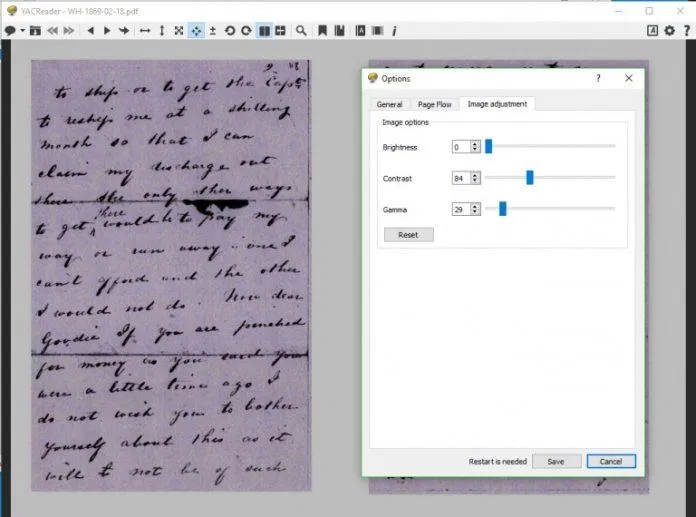 YACReader - WH-1869-02-18.pdf
2
to ship or to get the Capt
to reships me at a shilling
month so that I can
claim my discharge out
there the only other ways
there
to get would be to pay my
way or run away : one I
can't afford and the other
I would not do. Now dear
Goodie If you are pinched
for money as you said you
were a little time ago I
do not wish you to bother
yourself about this as it
will t not be of such
Options
?
General Page Flow Image adjustment
Image options
Brightness 0
Contrast 84
Gamma 29
Reset
Restart is needed Save Cancel